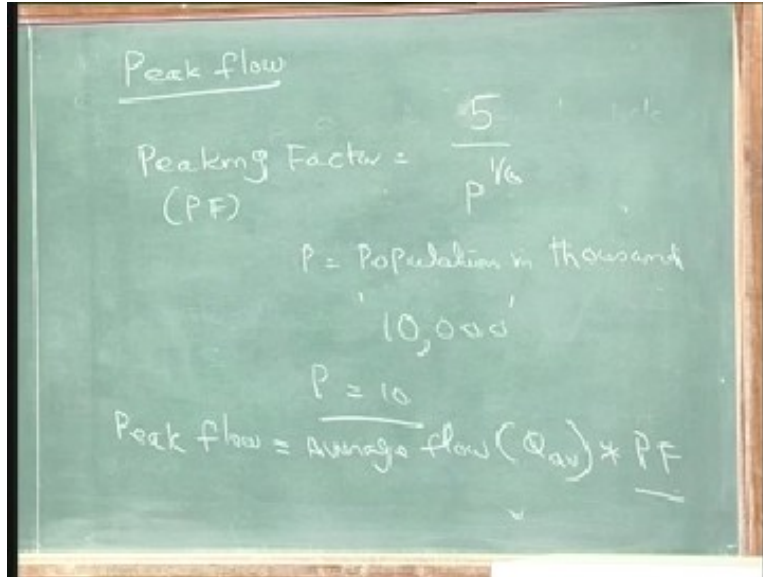 Peak flow
Peaking Factor = 5 / P^1/6
(PF)
P = Population in thousand
'10,000'
P = 10
Peak flow = Average flow (Qav) * PF